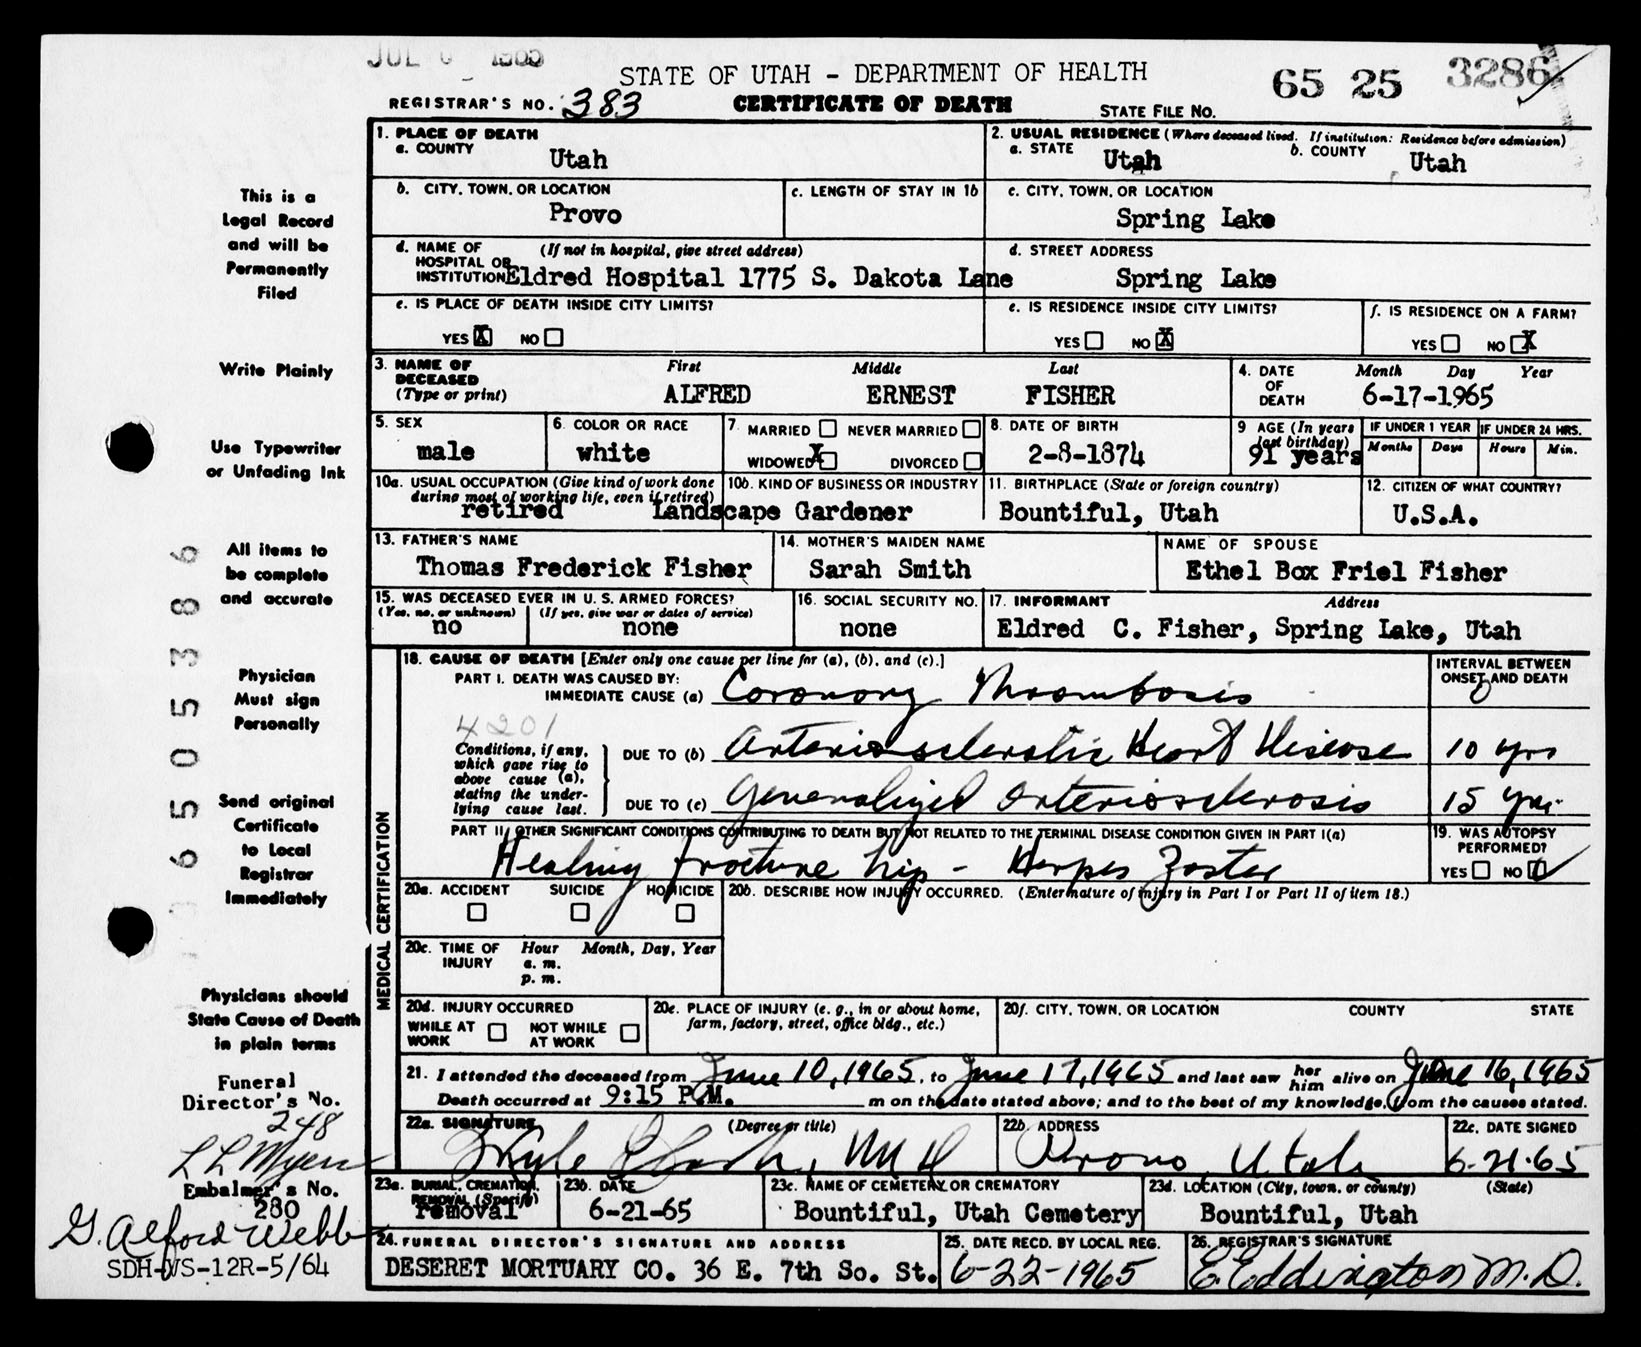 JUL 1965
STATE OF UTAH - DEPARTMENT OF HEALTH
65 25 3286
REGISTRAR'S NO. 383 CERTIFICATE OF DEATH STATE FILE NO.
This is a
Legal Record
and will be
Permanently
Filed
Write Plainly
Use Typewriter
or Unfading Ink
All items to
be complete
and accurate
Physician
Must sign
Personally
Send original
Certificate
to Local
Registrar
Immediately
Physicians should
State Cause of Death
in plain terms
Funeral
Director's No.
248
L L Myers
Embalmer's No.
280
G. Alford Webb
SDH-VS-12R-5/64
650 5386
1. PLACE OF DEATH
a. COUNTY
Utah
2. USUAL RESIDENCE (Where deceased lived. If institution: Residence before admission)
a. STATE Utah b. COUNTY Utah
b. CITY, TOWN, OR LOCATION
Provo
c. LENGTH OF STAY IN 1b
c. CITY, TOWN, OR LOCATION
Spring Lake
d. NAME OF (If not in hospital, give street address)
HOSPITAL OR
INSTITUTION Eldred Hospital 1775 S. Dakota Lane
d. STREET ADDRESS
Spring Lake
e. IS PLACE OF DEATH INSIDE CITY LIMITS?
YES X NO
e. IS RESIDENCE INSIDE CITY LIMITS?
YES NO X
f. IS RESIDENCE ON A FARM?
YES NO X
3. NAME OF DECEASED (Type or print)
First Middle Last
ALFRED ERNEST FISHER
4. DATE OF DEATH
Month Day Year
6-17-1965
5. SEX
male
6. COLOR OR RACE
white
7. MARRIED NEVER MARRIED
WIDOWED X DIVORCED
8. DATE OF BIRTH
2-8-1874
9 AGE (In years last birthday)
91 years
IF UNDER 1 YEAR
Months Days
IF UNDER 24 HRS.
Hours Min.
10a. USUAL OCCUPATION (Give kind of work done
during most of working life, even if retired)
retired Landscape Gardener
10b. KIND OF BUSINESS OR INDUSTRY
11. BIRTHPLACE (State or foreign country)
Bountiful, Utah
12. CITIZEN OF WHAT COUNTRY?
U.S.A.
13. FATHER'S NAME
Thomas Frederick Fisher
14. MOTHER'S MAIDEN NAME
Sarah Smith
NAME OF SPOUSE
Ethel Box Friel Fisher
15. WAS DECEASED EVER IN U. S. ARMED FORCES?
(Yes, no, or unknown) (If yes, give war or dates of service)
no none
16. SOCIAL SECURITY NO.
none
17. INFORMANT Address
Eldred C. Fisher, Spring Lake, Utah
MEDICAL CERTIFICATION
18. CAUSE OF DEATH [Enter only one cause per line for (a), (b), and (c).]
PART I. DEATH WAS CAUSED BY:
IMMEDIATE CAUSE (a) Coronary Thrombosis
INTERVAL BETWEEN
ONSET AND DEATH
0
4201
Conditions, if any,
which gave rise to
above cause (a),
stating the under-
lying cause last.
DUE TO (b) Arteriosclerotic Heart Disease 10 yrs
DUE TO (c) Generalized Arteriosclerosis 15 yrs.
PART II. OTHER SIGNIFICANT CONDITIONS CONTRIBUTING TO DEATH BUT NOT RELATED TO THE TERMINAL DISEASE CONDITION GIVEN IN PART I(a)
Healing fracture hip - Herpes Zoster
19. WAS AUTOPSY
PERFORMED?
YES NO ✓
20a. ACCIDENT SUICIDE HOMICIDE
20b. DESCRIBE HOW INJURY OCCURRED. (Enter nature of injury in Part I or Part II of item 18.)
20c. TIME OF INJURY
Hour Month, Day, Year
a. m.
p. m.
20d. INJURY OCCURRED
WHILE AT WORK NOT WHILE AT WORK
20e. PLACE OF INJURY (e. g., in or about home,
farm, factory, street, office bldg., etc.)
20f. CITY, TOWN, OR LOCATION COUNTY STATE
21. I attended the deceased from June 10, 1965, to June 17, 1965 and last saw her him alive on June 16, 1965
Death occurred at 9:15 P.M. m on the date stated above; and to the best of my knowledge, from the causes stated.
22a. SIGNATURE (Degree or title)
M D
22b. ADDRESS
Provo, Utah
22c. DATE SIGNED
6-21-65
23a. BURIAL, CREMATION,
REMOVAL (Specify)
removal
23b. DATE
6-21-65
23c. NAME OF CEMETERY OR CREMATORY
Bountiful, Utah Cemetery
23d. LOCATION (City, town, or county) (State)
Bountiful, Utah
24. FUNERAL DIRECTOR'S SIGNATURE AND ADDRESS
DESERET MORTUARY CO. 36 E. 7th So. St.
25. DATE RECD. BY LOCAL REG.
6-22-1965
26. REGISTRAR'S SIGNATURE
E. Eddington M.D.